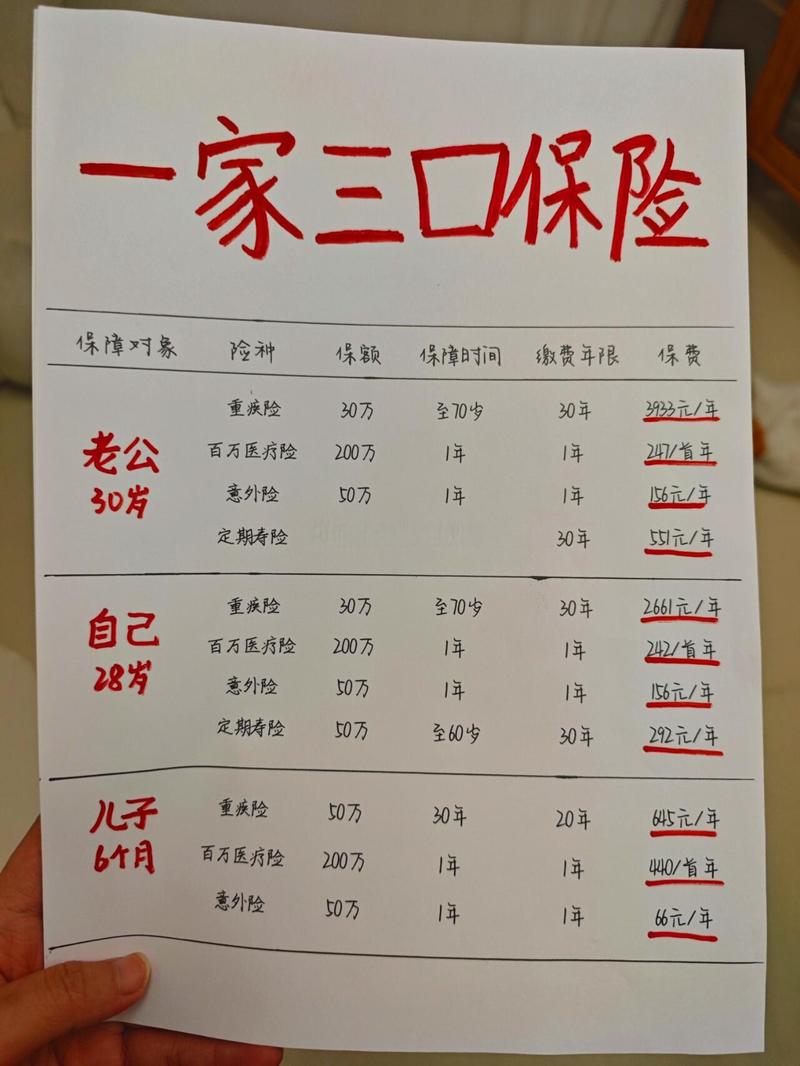 一家三口保险
保障对象 险种 保额 保障时间 缴费年限 保费
老公 30岁
重疾险 30万 至70岁 30年 3933元/年
百万医疗险 200万 1年 1年 247/首年
意外险 50万 1年 1年 156元/年
定期寿险 30年 551元/年
自己 28岁
重疾险 30万 至70岁 30年 2661元/年
百万医疗险 200万 1年 1年 242/首年
意外险 50万 1年 1年 156元/年
定期寿险 50万 至60岁 30年 292元/年
儿子 6个月
重疾险 50万 30年 20年 645元/年
百万医疗险 200万 1年 1年 440/首年
意外险 50万 1年 1年 66元/年